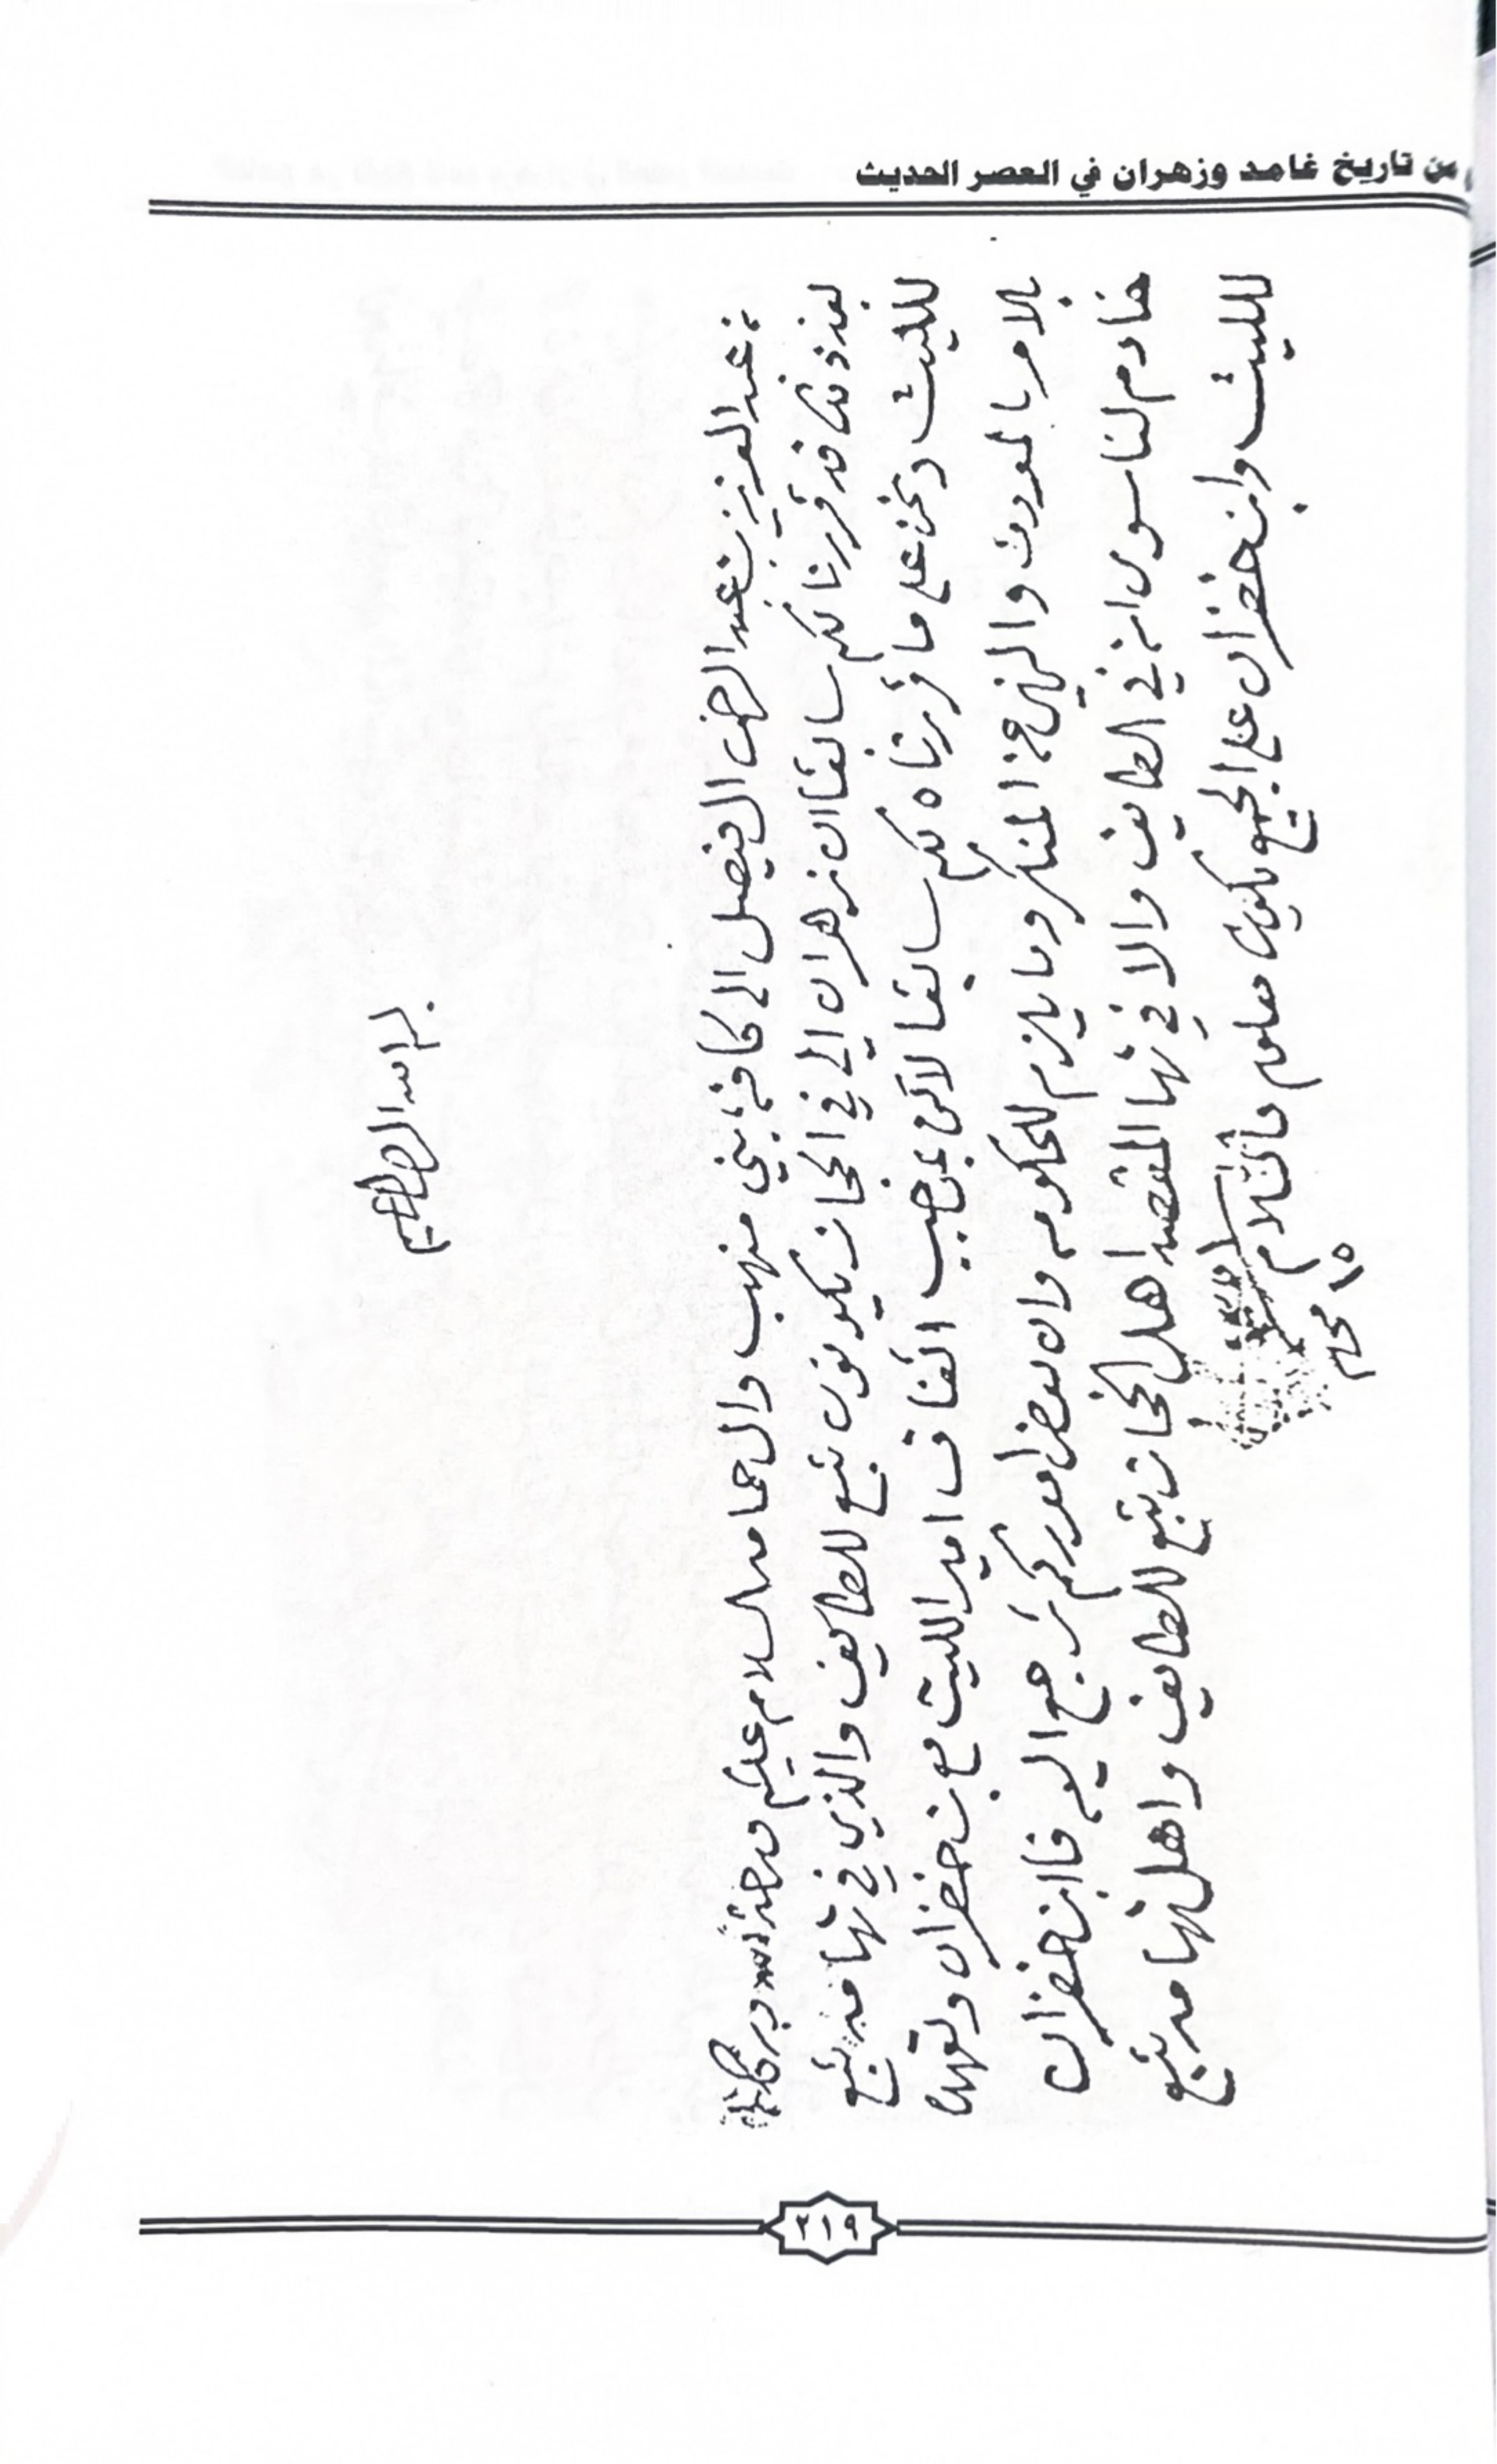 من تاريخ غامد وزهران في العصر الحديث
بسم الله الرحمن الرحيم
من عبد العزيز بن عبد الرحمن ال فيصل الى كافة بني منهب وال حمامد السلام عليكم ورحمة الله وبركاته
بعد ذلك قد قررنا لكم سابقا ان زهران الي في الحجاز يكونون تبع للطايف والذي في تهامه تبع
لليث ونحن على ما قررناه لكم سابقا لاكن بموجب اتفاق امير الليث مع بن خضران وتعهد
بالامر بالمعروف والنهي عن المنكر وما يلزم للحكومه وان بعض اموركم ترجع اليه فابن خضران
خادم لنا سوى انه في الطايف والا في تهامه المقصد اهل الحجاز تبع للطايف واهل تهامه تبع
لليث وابن خضران على الجميع يكون معلوم والسلام
١٥ محرم
٣١٩